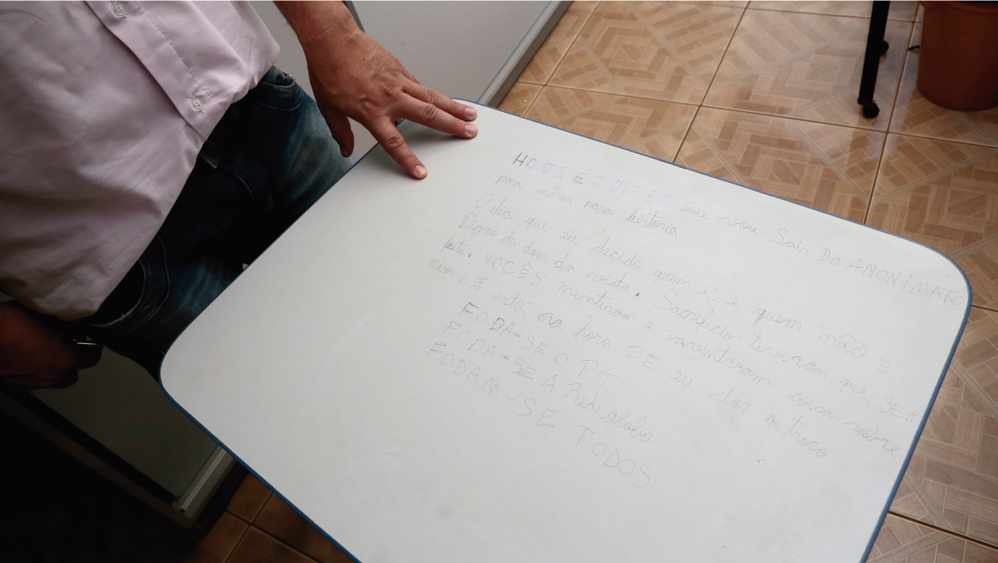 HOJE É O DIA E: Que vou Sair DO ANONIMATO
para entrar para história
O dia que eu decido quem é, e quem não E
Digno do dom da vida. Sacrificios teveram que SER
feito. VOCÊS mentiram e inventaram coisas sobre
mim, é está na hora DE eu dar o troco
FODA-SE O PT
FODA-SE A Rede globo
FODAM-SE TODOS